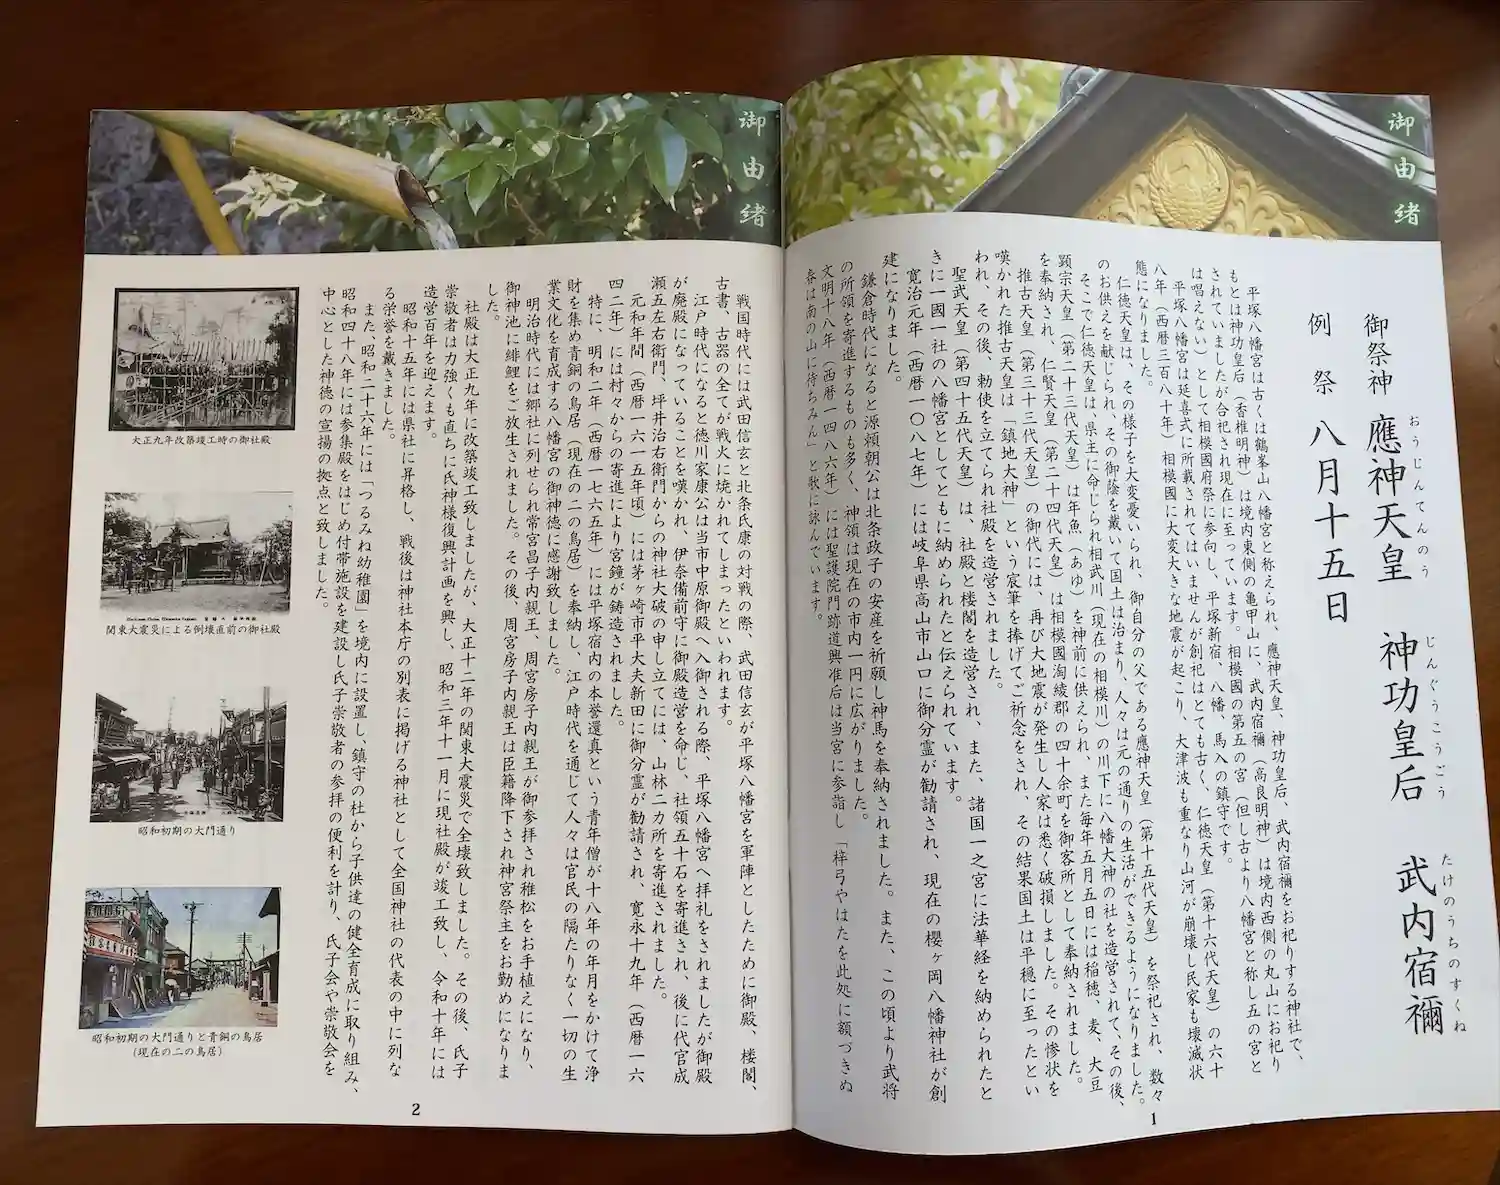 御由緒
御祭神 應神天皇 神功皇后 武内宿禰
おうじんてんのう じんぐうこうごう たけのうちのすくね
例祭 八月十五日
平塚八幡宮は古くは鶴峯山八幡宮と称えられ、應神天皇、神功皇后、武内宿禰をお祀りする神社で、
もとは神功皇后(香椎明神)は境内東側の亀甲山に、武内宿禰(高良明神)は境内西側の丸山にお祀り
されていましたが合祀され現在に至っています。相模國の第五の宮(但し古より八幡宮と称し五の宮と
は唱えない)として相模國府祭に参向し、平塚新宿、八幡、馬入の鎮守です。
平塚八幡宮は延喜式に所載されてはいませんが創祀はとても古く、仁徳天皇(第十六代天皇)の六十
八年(西暦三百八十年)相模國に大変大きな地震が起こり、大津波も重なり山河が崩壊し民家も壊滅状
態になりました。
仁徳天皇は、その様子を大変憂いられ、御自分の父である應神天皇(第十五代天皇)を祭祀され、数々
のお供えを献じられ、その御蔭を戴いて国土は治まり、人々は元の通りの生活ができるようになりました。
そこで仁徳天皇は、県主に命じられ相武川(現在の相模川)の川下に八幡大神の社を造営されて、その後、
顕宗天皇(第二十三代天皇)は年魚(あゆ)を神前に供えられ、また毎年五月五日には稲穂、麦、大豆
を奉納され、仁賢天皇(第二十四代天皇)は相模國淘綾郡の四十余町を御客所として奉納されました。
推古天皇(第三十三代天皇)の御代には、再び大地震が発生し人家は悉く破損しました。その惨状を
嘆かれた推古天皇は「鎮地大神」という宸筆を捧げてご祈念をされ、その結果国土は平穏に至ったとい
われ、その後、勅使を立てられ社殿を造営されました。
聖武天皇(第四十五代天皇)は、社殿と楼閣を造営され、また、諸国一之宮に法華経を納められたと
きに一國一社の八幡宮としてともに納められたと伝えられています。
寛治元年(西暦一〇八七年)には岐阜県高山市山口に御分霊が勧請され、現在の櫻ヶ岡八幡神社が創
建になりました。
鎌倉時代になると源頼朝公は北条政子の安産を祈願し神馬を奉納されました。また、この頃より武将
の所領を寄進するものも多く、神領は現在の市内一円に広がりました。
文明十八年(西暦一四八六年)には聖護院門跡道興准后は当宮に参詣し「梓弓やはたを此処に額づきぬ
春は南の山に待ちみん」と歌に詠んでいます。
1
御由緒
戦国時代には武田信玄と北条氏康の対戦の際、武田信玄が平塚八幡宮を軍陣としたために御殿、楼閣、
古書、古器の全てが戦火に焼かれてしまったといわれます。
江戸時代になると徳川家康公は当市中原御殿へ入御される際、平塚八幡宮へ拝礼をされましたが御殿
が廃殿になっていることを嘆かれ、伊奈備前守に御殿造営を命じ、社領五十石を寄進され、後に代官成
瀬五左右衛門、坪井治右衛門からの神社大破の申し立てには、山林二カ所を寄進されました。
元和年間(西暦一六一五年頃)には茅ヶ崎市平太夫新田に御分霊が勧請され、寛永十九年(西暦一六
四二年)には村々からの寄進により宮鐘が鋳造されました。
特に、明和二年(西暦一七六五年)には平塚宿内の本誉還真という青年僧が十八年の年月をかけて浄
財を集め青銅の鳥居(現在の二の鳥居)を奉納し、江戸時代を通じて人々は官民の隔たりなく一切の生
業文化を育成する八幡宮の御神徳に感謝致しました。
明治時代には郷社に列せられ常宮昌子内親王、周宮房子内親王が御参拝され稚松をお手植えになり、
御神池に緋鯉をご放生されました。その後、周宮房子内親王は臣籍降下され神宮祭主をお勤めになりま
した。
社殿は大正九年に改築竣工致しましたが、大正十二年の関東大震災で全壊致しました。その後、氏子
崇敬者は力強くも直ちに氏神様復興計画を興し、昭和三年十一月に現社殿が竣工致し、令和十年には
造営百年を迎えます。
昭和十五年には県社に昇格し、戦後は神社本庁の別表に掲げる神社として全国神社の代表の中に列な
る栄誉を戴きました。
また、昭和二十六年には「つるみね幼稚園」を境内に設置し、鎮守の杜から子供達の健全育成に取り組み、
昭和四十八年には参集殿をはじめ付帯施設を建設し氏子崇敬者の参拝の便利を計り、氏子会や崇敬会を
中心とした神徳の宣揚の拠点と致しました。
大正九年改築竣工時の御社殿
関東大震災による倒壊直前の御社殿
昭和初期の大門通り
昭和初期の大門通りと青銅の鳥居
(現在の二の鳥居)
2